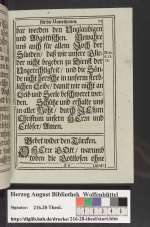 dar werden den Unglaubigen
und Abgöttischen. Bewahre
uns auch für allem Joch der
Sünden, daß wir unsere Glie-
der nicht begeben zu Dienst der
Ungerechtigkeit, und die Sün-
de nicht herrsche in unserm sterb-
lichen Leibe, damit wir nicht an
Leib und Seele beschweret wer-
den. Schütze und erhalte uns
in aller Noht, durch Jesum
Christum unsern HErrn und
Erlöser, Amen.
Gebet wider den Türcken.
HErr GOtt, warumb
toben die Gottlosen ohne
Herzog August Bibliothek Wolfenbüttel
Signatur: 216.28 Theol.
http://diglib.hab.de/drucke/216-28-theol/start.htm